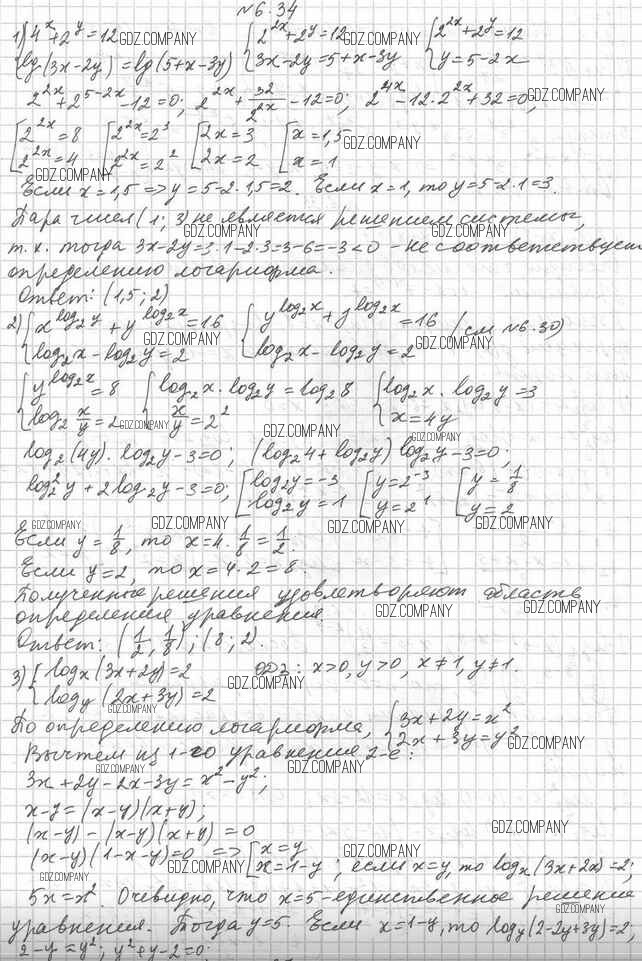 №6.34
1) { 4^x + 2^y = 12 { 2^{2x} + 2^y = 12 { 2^{2x} + 2^y = 12
lg(3x-2y) = lg(5+x-3y) 3x-2y = 5+x-3y y = 5-2x
2^{2x} + 2^{5-2x} - 12 = 0; 2^{2x} + 32/2^{2x} - 12 = 0; 2^{4x} - 12·2^{2x} + 32 = 0;
[ 2^{2x} = 8 [ 2^{2x} = 2^3 [ 2x = 3 [ x = 1,5
2^{2x} = 4 2^{2x} = 2^2 2x = 2 x = 1
Если x = 1,5 => y = 5-2·1,5 = 2. Если x = 1, то y = 5-2·1 = 3.
Пара чисел (1; 3) не является решением системы,
т.к. тогда 3x-2y = 3·1-2·3 = 3-6 = -3 < 0 - не соответствует
определению логарифма.
Ответ: (1,5; 2)
2) { x^{log_2 y} + y^{log_2 x} = 16 { y^{log_2 x} + y^{log_2 x} = 16 (см №6.30)
log_2 x - log_2 y = 2 log_2 x - log_2 y = 2
{ y^{log_2 x} = 8 { log_2 x · log_2 y = log_2 8 { log_2 x · log_2 y = 3
log_2 x/y = 2 x/y = 2^2 x = 4y
log_2 (4y) · log_2 y - 3 = 0; (log_2 4 + log_2 y) log_2 y - 3 = 0;
log_2^2 y + 2 log_2 y - 3 = 0; [ log_2 y = -3 [ y = 2^{-3} [ y = 1/8
log_2 y = 1 y = 2^1 y = 2
Если y = 1/8, то x = 4 · 1/8 = 1/2.
Если y = 2, то x = 4·2 = 8.
Полученные решения удовлетворяют область
определения уравнения.
Ответ: (1/2, 1/8); (8; 2).
3) { log_x (3x+2y) = 2 ОДЗ: x>0, y>0, x≠1, y≠1.
log_y (2x+3y) = 2
По определению логарифма, { 3x+2y = x^2
2x+3y = y^2
Вычтем из 1-го уравнения 2-е:
3x+2y-2x-3y = x^2-y^2;
x-y = (x-y)(x+y);
(x-y) - (x-y)(x+y) = 0
(x-y)(1-x-y) = 0 => [ x = y
x = 1-y ; если x = y, то log_x (3x+2x) = 2;
5x = x^2. Очевидно, что x = 5 - единственное решение
уравнения. Тогда y = 5. Если x = 1-y, то log_y (2-2y+3y) = 2;
2-y = y^2; y^2+y-2 = 0;
GDZ.COMPANY